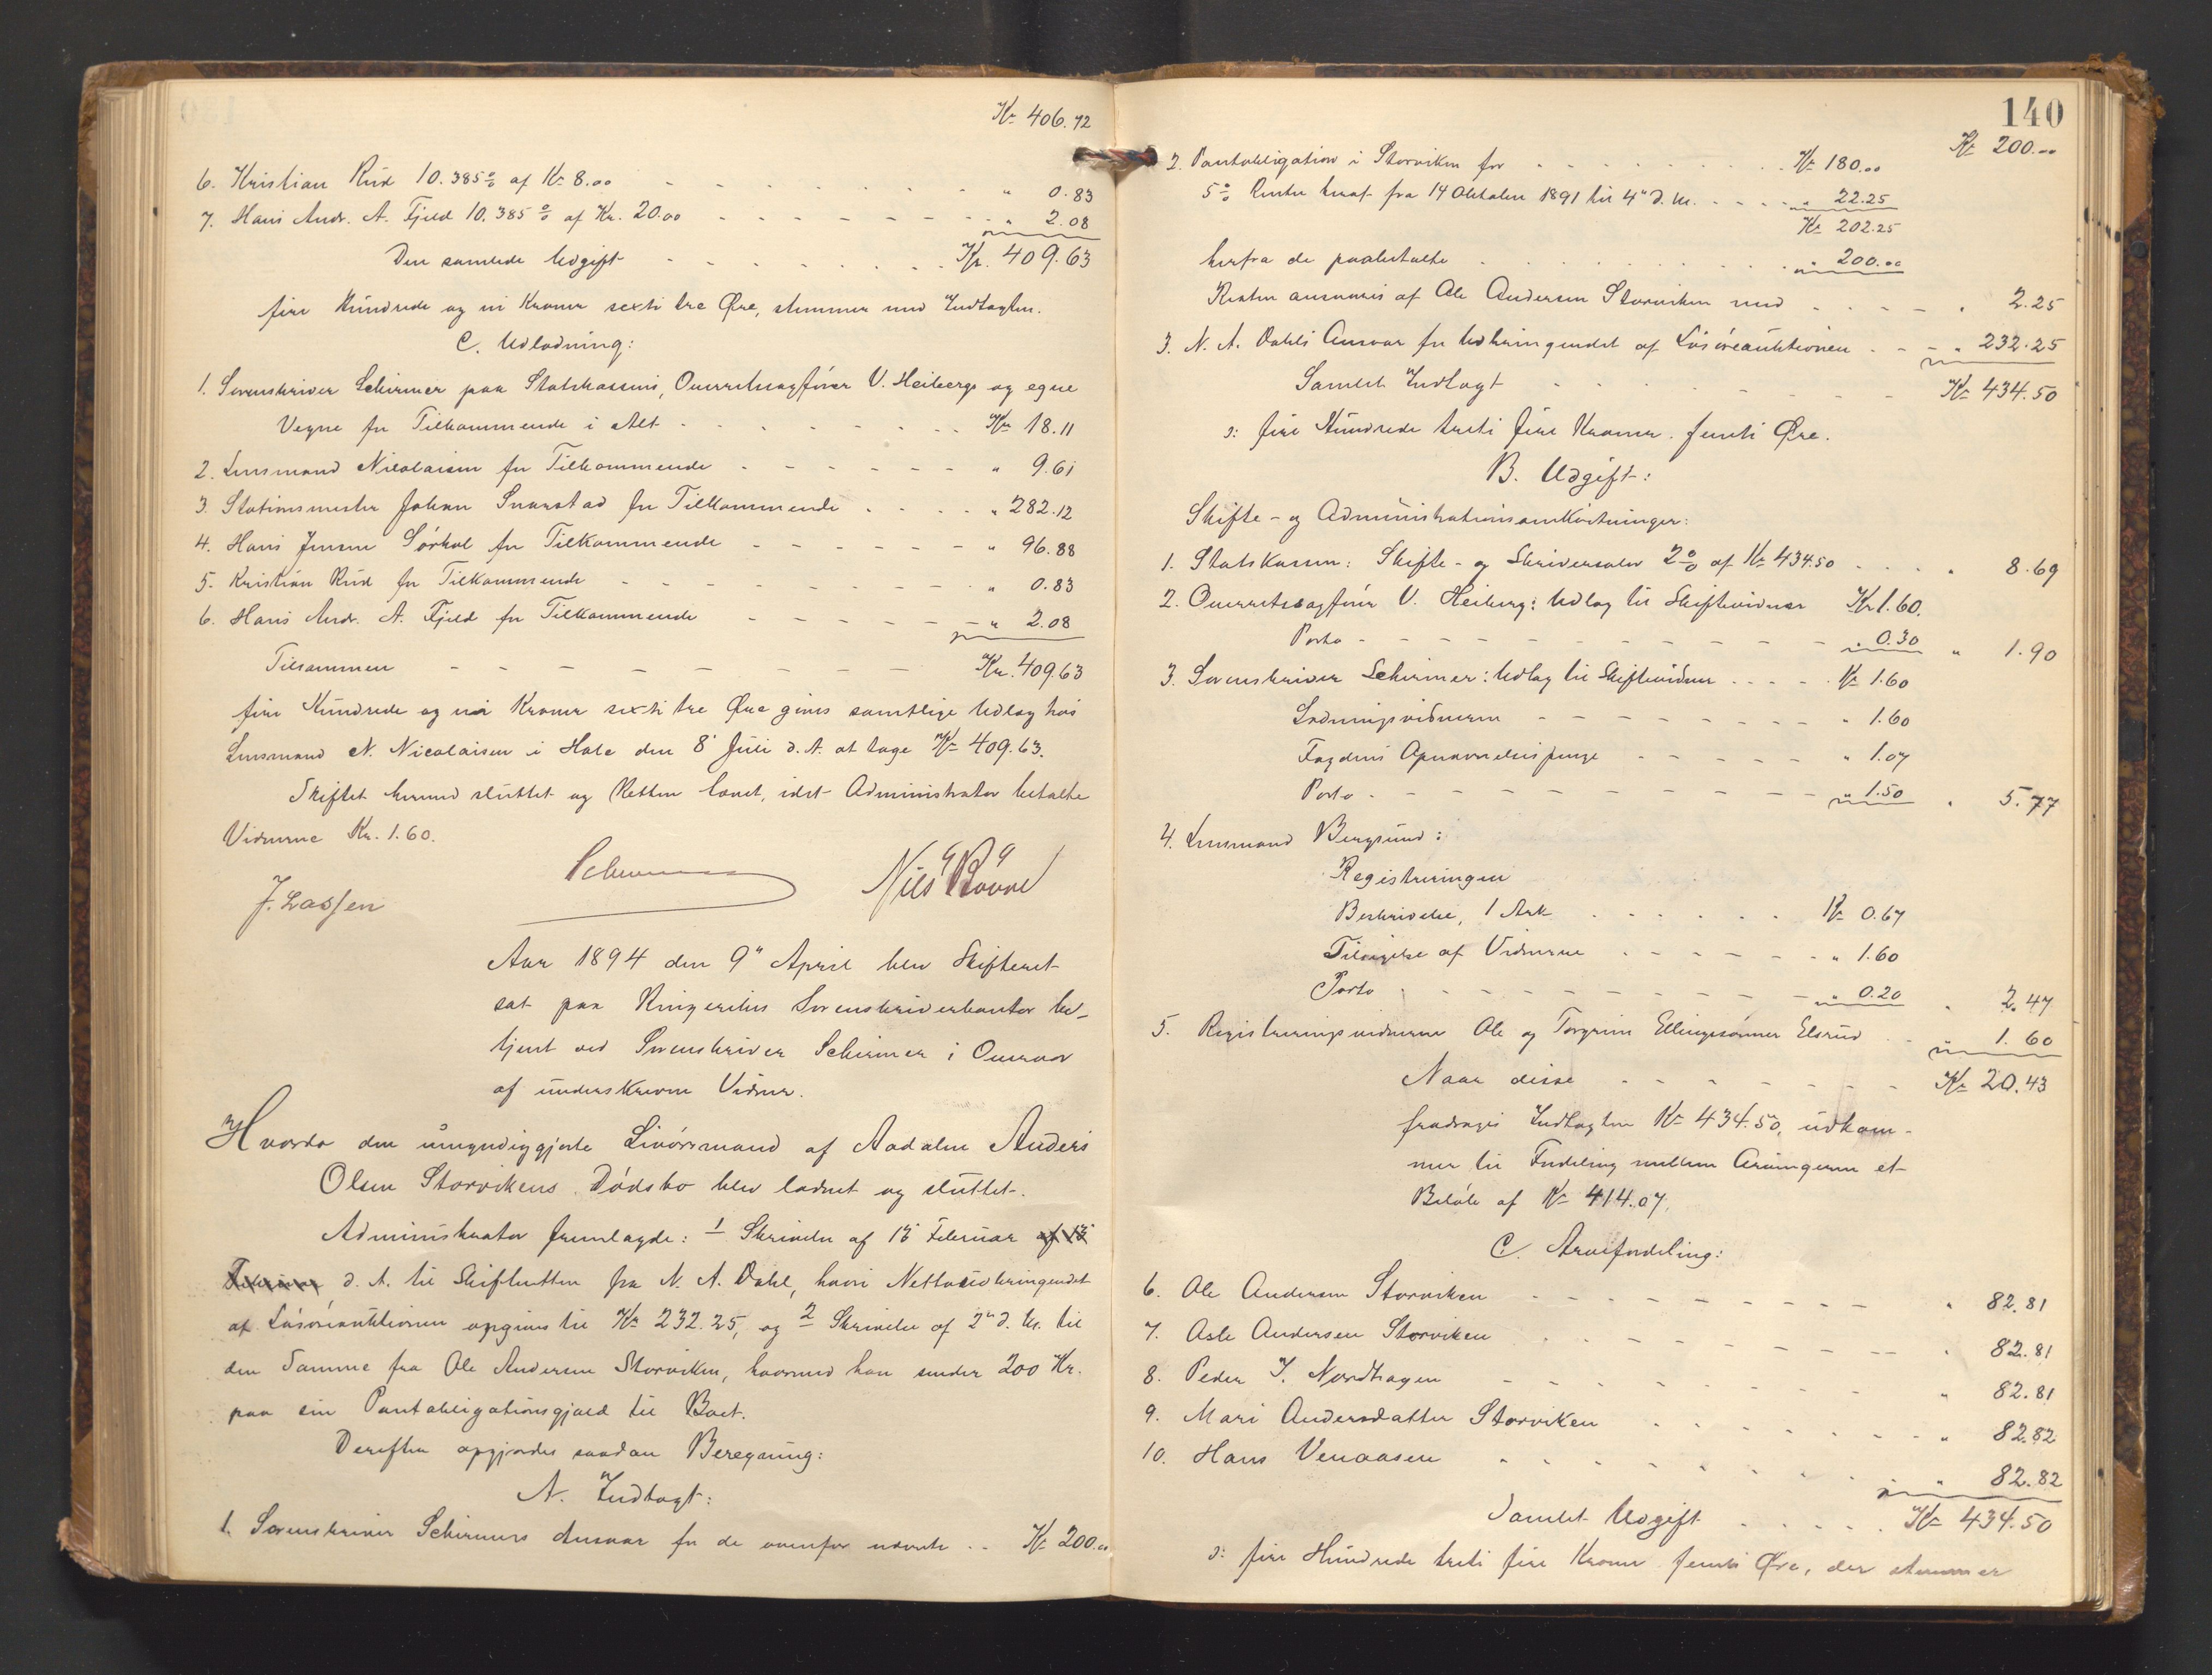 Kr 406.72
6. Kristian Rud 10.385% af Kr 8.00 " 0.83
7. Hans Andr. A. Fjeld 10.385% af Kr. 20.00 " 2.08
Den samlede Udgift Kr. 409.63
fire Hundrede og ni Kroner sexti tre Øre, stemmer med Indtægten.
C. Udlodning:
1. Sorenskriver Schirmer paa Statskassens, Overretssagfører V. Heibergs og egne
Vegne for Tilkommende i Alt Kr 18.11
2. Lensmand Nicolaisen for Tilkommende " 9.61
3. Stationsmester Johan Snarstad for Tilkommende " 282.12
4. Hans Jensen Sørhol for Tilkommende " 96.88
5. Kristian Rud for Tilkommende " 0.83
6. Hans Andr. A. Fjeld for Tilkommende " 2.08
Tilsammen Kr. 409.63
fire Hundrede og ni Kroner sexti tre Øre gives samtlige Udlæg hos
Lensmand N. Nicolaisen i Hole den 8' Juli d. A. at tage Kr 409.63.
Skiftet hermed sluttet og Retten hævet, idet Administrator betalte
Vidnerne Kr. 1.60.
Schirmer
J. Lassen
Aar 1894 den 9" April blev Skifteret
sat paa Ringerikes Sorenskriverkontor be-
tjent ved Sorenskriver Schirmer i Overvær
af underskrevne Vidner.
Hvorda den umyndiggjorte Livørsmand af Aadalen Anders
Olsen Storvikens Dødsbo blev lodnet og sluttet.
Administrator fremlagde: 1 Skrivelse af 13' Februar af 13'
Februar d. A. til Skifteretten fra N. A. Dahl, hvori Nettoudbringendet
af Løsøreauktionen opgives til Kr 232.25, og 2 Skrivelse af 2" d. M. til
den Samme fra Ole Andersen Storviken, hvormed han sender 200 Kr.
paa sin Pantobligationsgjæld til Boet.
Derefter opgjordes saadan Beregning:
A. Indtægt:
1. Sorenskriver Schirmers Ansvar for de ovenfor nævnte Kr 200.00
140
Kr 200.00
2. Pantobligation i Storviken for Kr 180.00
5% Renter heraf fra 14 Oktober 1891 til 4" d. M. " 22.25
Kr 202.25
herfra de paabetalte " 200.00
Resten ansvares af Ole Andersen Storviken med " 2.25
3. N. A. Dahls Ansvar for Udbringendet af Løsøreauktionen " 232.25
Samlet Indtægt Kr 434.50
ɔ: fire Hundrede treti fire Kroner femti Øre.
B. Udgift:
Skifte- og Administrationsomkostninger:
1. Statskassen: Skifte- og Skriversalær 2% af Kr 434.50 " 8.69
2. Overretssagfører V. Heiberg: Udlæg til Skiftevidner Kr 1.60
Porto " 0.30 " 1.90
3. Sorenskriver Schirmer: Udlæg til Skiftevidner Kr 1.60
Lodningsvidnerne " 1.60
Fogdens Opnævnelsespenge " 1.07
Porto " 1.50 " 5.77
4. Lensmand Bergsund:
Registreringen
Beskrivelse, 1 Ark Kr 0.67
Tilsigelse af Vidnerne " 1.60
Porto " 0.20 " 2.47
5. Registreringsvidnerne Ole og Torgrim Ellingsønner Elsrud " 1.60
Naar disse Kr 20.43
fradrages Indtægten Kr 434.50, udkom-
mer til Fordeling mellem Arvingerne et
Beløb af Kr 414.07.
C. Arvefordeling:
6. Ole Andersen Storviken " 82.81
7. Asle Andersen Storviken " 82.81
8. Peder I. Nordhagen " 82.81
9. Mari Andersdatter Storviken " 82.82
10. Hans Venaasen " 82.82
Samlet Udgift Kr 434.50
ɔ: fire Hundrede treti fire Kroner femti Øre, der stemmer